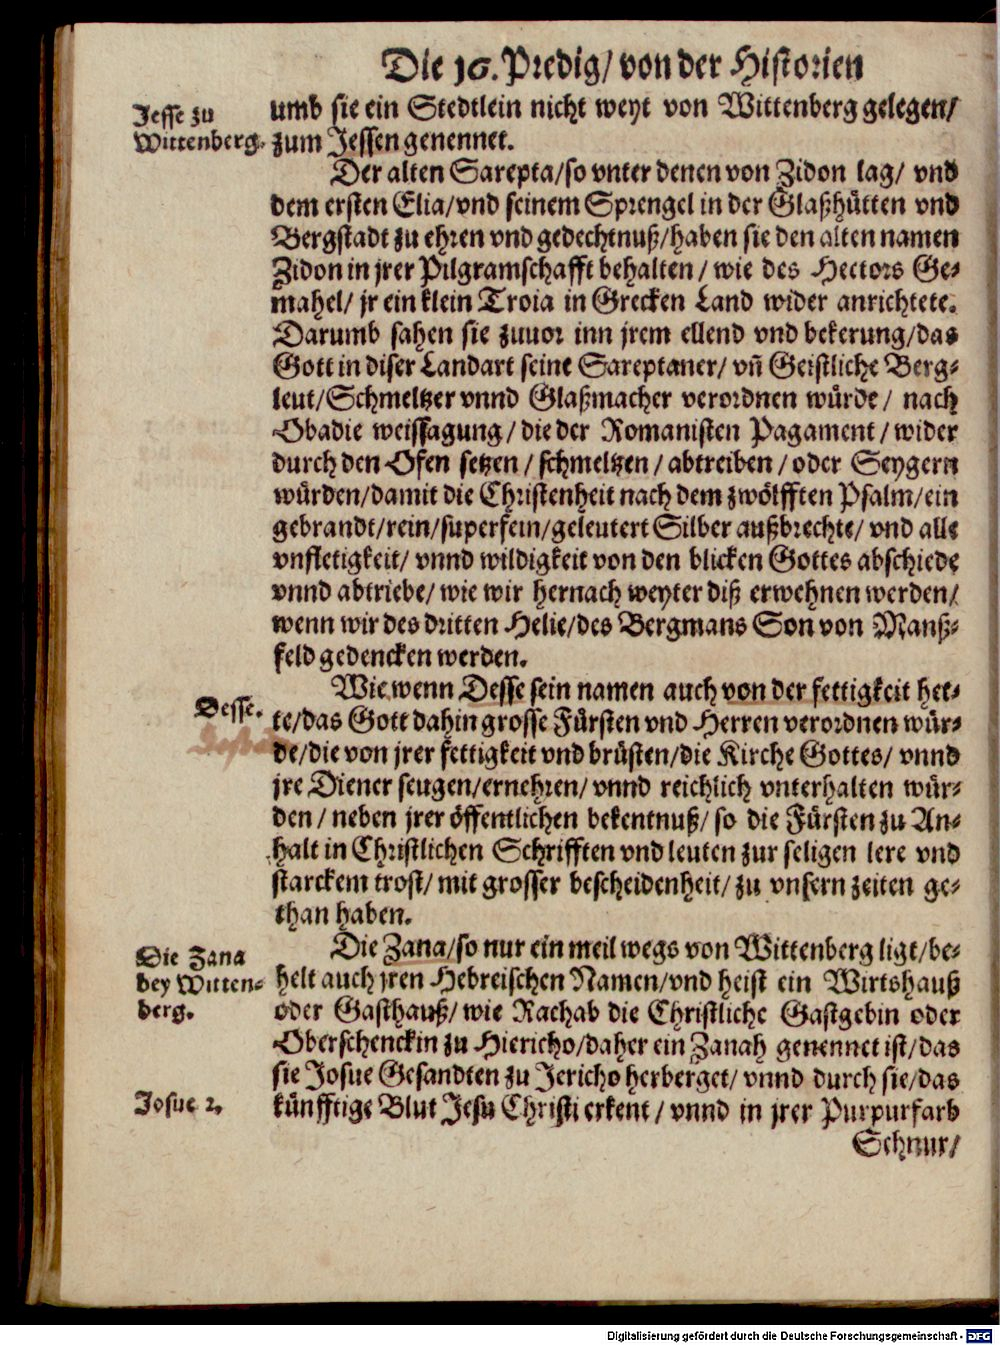 Die 16. Predig/ von der Historien
Jesse zu
Wittenberg.
umb sie ein Stedtlein nicht weyt von Wittenberg gelegen/
zum Jessen genennet.
Der alten Sarepta/ so vnter denen von Zidon lag/ vnd
dem ersten Elia/ vnd seinem Sprengel in der Glaßhütten vnd
Bergstadt zu ehren vnd gedechtnuß/ haben sie den alten namen
Zidon in jrer Pilgramschafft behalten/ wie des Hectors Ge-
mahel/ jr ein klein Troia in Grecken Land wider anrichtete.
Darumb sahen sie zuuor inn jrem ellend vnd bekerung/ das
Gott in diser Landart seine Sareptaner/ vñ Geistliche Berg-
leut/ Schmeltzer vnnd Glaßmacher verordnen würde/ nach
Obadie weissagung/ die der Romanisten Pagament/ wider
durch den Ofen setzen/ schmeltzen/ abtreiben/ oder Seygern
würden/ damit die Christenheit nach dem zwölfften Psalm/ ein
gebrandt/ rein/ superfein/ geleutert Silber außbrechte/ vnd alle
vnfletigkeit/ vnnd wildigkeit von den blicken Gottes abschiede
vnnd abtriebe/ wie wir hernach weyter diß erwehnen werden/
wenn wir des dritten Helie/ des Bergmans Son von Manß-
feld gedencken werden.
Wie wenn Desse sein namen auch von der fettigkeit het-
Desse.
te/ das Gott dahin grosse Fürsten vnd Herren verordnen wür-
de/ die von jrer fettigkeit vnd brüsten/ die Kirche Gottes/ vnnd
jre Diener seugen/ ernehren/ vnnd reichlich vnterhalten wür-
den/ neben jrer öffentlichen bekentnuß/ so die Fürsten zu An-
halt in Christlichen Schrifften vnd leuten zur seligen lere vnd
starckem trost/ mit grosser bescheidenheit/ zu vnsern zeiten ge-
than haben.
Die Zana
bey Witten-
berg.
Die Zana/ so nur ein meil wegs von Wittenberg ligt/ be-
helt auch jren Hebreischen Namen/ vnd heist ein Wirtshauß
oder Gasthauß/ wie Rachab die Christliche Gastgebin oder
Oberschenckin zu Hiericho/ daher ein Zanah genennet ist/ das
sie Josue Gesandten zu Jericho herberget/ vnnd durch sie/ das
Josue 2.
künfftige Blut Jesu Christi erkent/ vnnd in jrer Purpurfarb
Schnur/
Digitalisierung gefördert durch die Deutsche Forschungsgemeinschaft - DFG